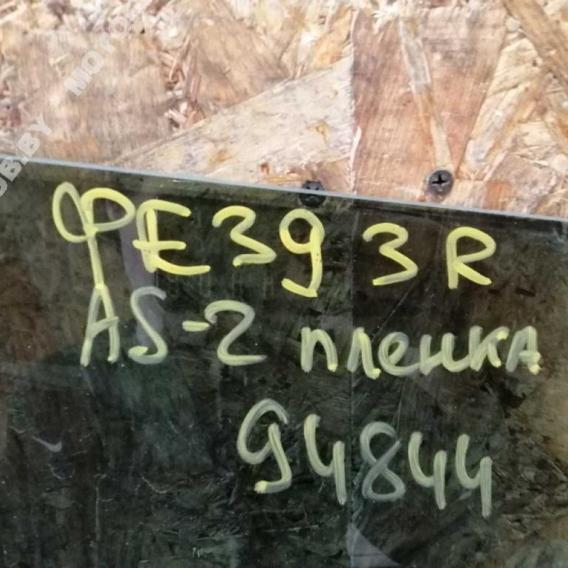 ФЕ39 3R
AS-2 пленка
94844